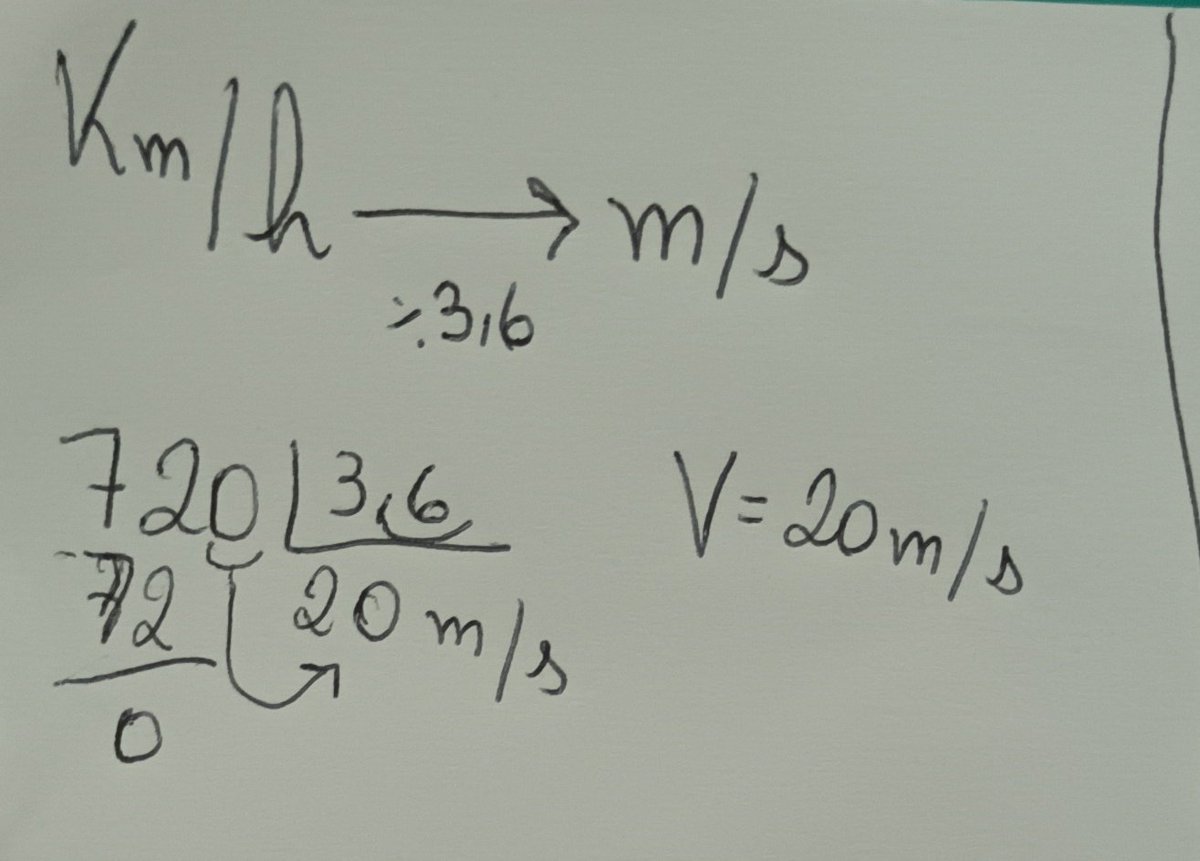 Km/h → m/s
÷3,6
720 | 3,6
72 20 m/s
0
V=20m/s